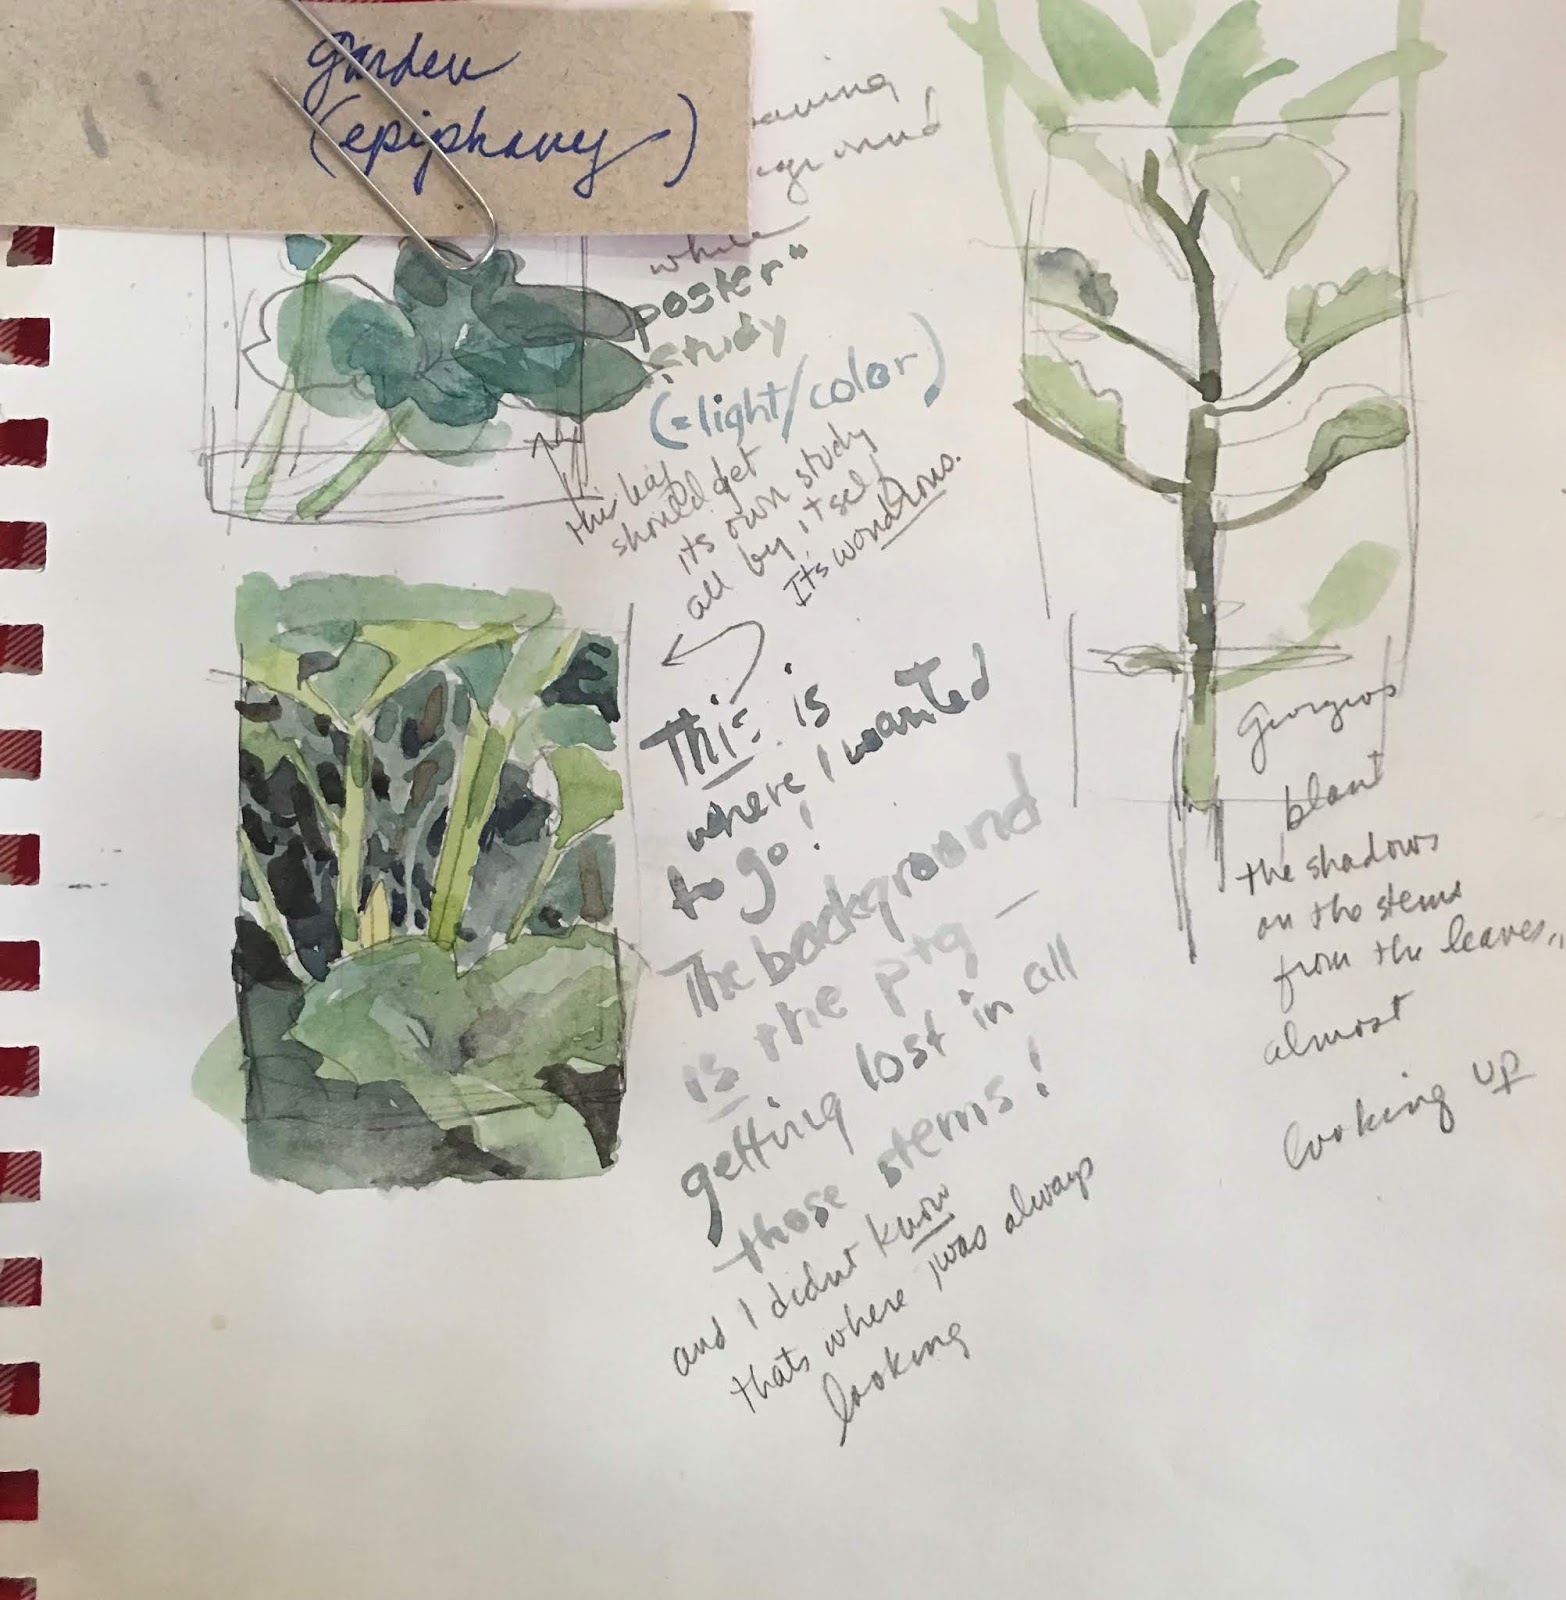 garden
(epiphany)
while
poster"
study
(=light/color)
the leaf
should get
its own study
all by itself
It's wondrous.
This is
where I wanted
to go!
The background
is the ptg —
getting lost in all
those stems!
and I didnt know
thats where I was always
looking
Giorgios
plant
the shadows
on the stems
from the leaves,,
almost
looking up